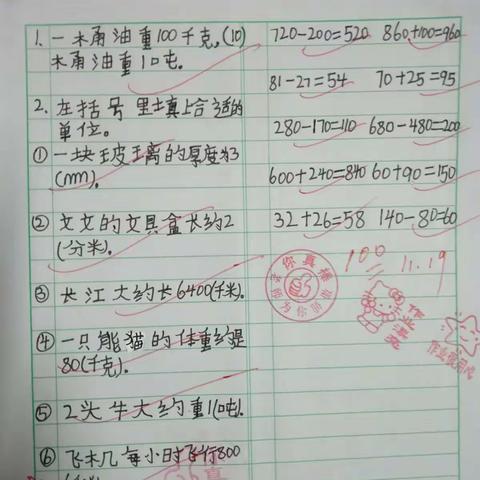 1. 一木甬油重100千克,(10)
木甬油重1口吨.
2. 在括号里填上合适的
单位。
① 一块玻璃的厚度为3
(mm).
② 文文的文具盒长约2
(分米).
③ 长江大约长6400(千米).
④ 一只熊猫的体重约是
80(千克).
⑤ 2头牛大约重1(吨).
⑥ 飞机每小时飞行800
720-200=520 860+100=960
81-27=54 70+25=95
280-170=110 680-480=200
600+240=840 60+90=150
32+26=58 140-80=60
100
11.19
你真棒
作业漂亮